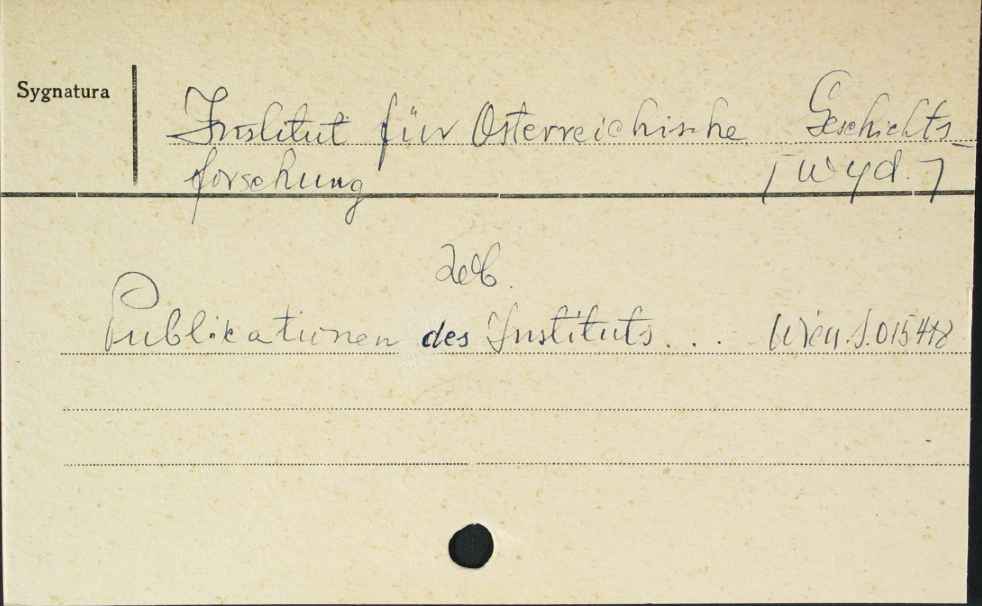 Sygnatura
Institut für Österreichische Geschichts-
forschung [wyd.]
zob.
Publikationen des Instituts... Wien. S.015448